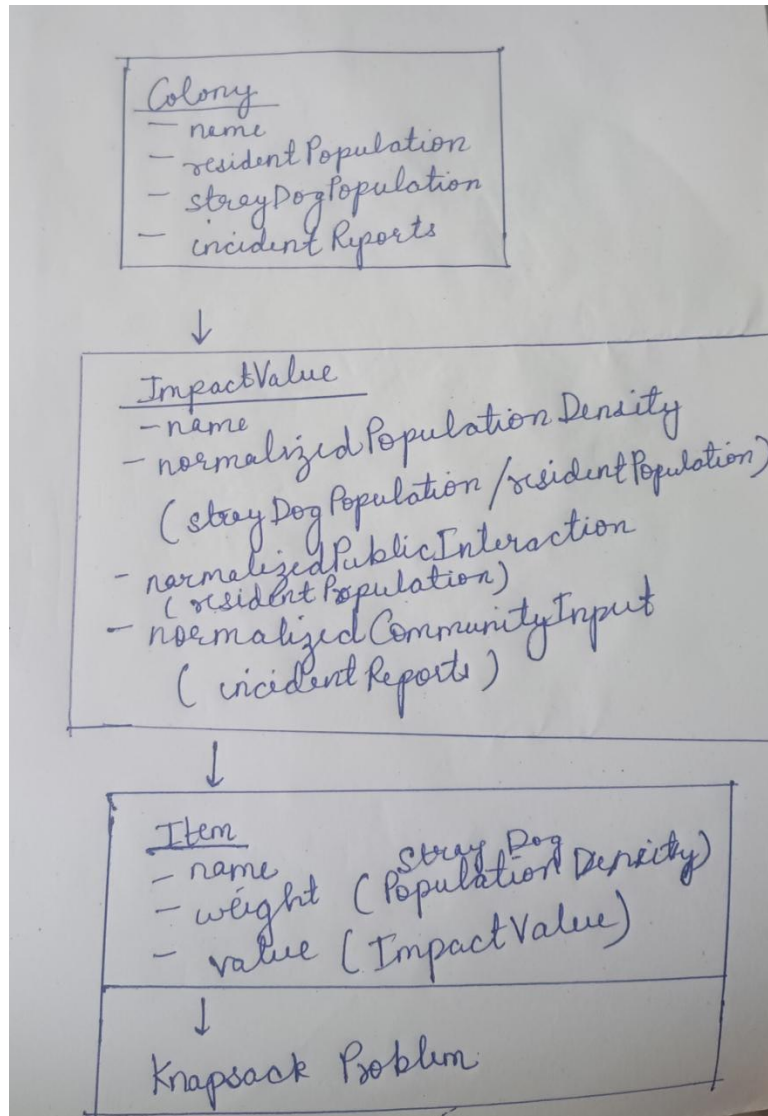 Colony
- name
- residentPopulation
- strayDogPopulation
- incidentReports
↓
ImpactValue
- name
- normalizedPopulationDensity
(strayDogPopulation/residentPopulation)
- normalizedPublicInteraction
(residentPopulation)
- normalizedCommunityInput
(incidentReports)
↓
Item
- name
- weight (Stray Dog Population Density)
- value (ImpactValue)
↓
Knapsack Problem